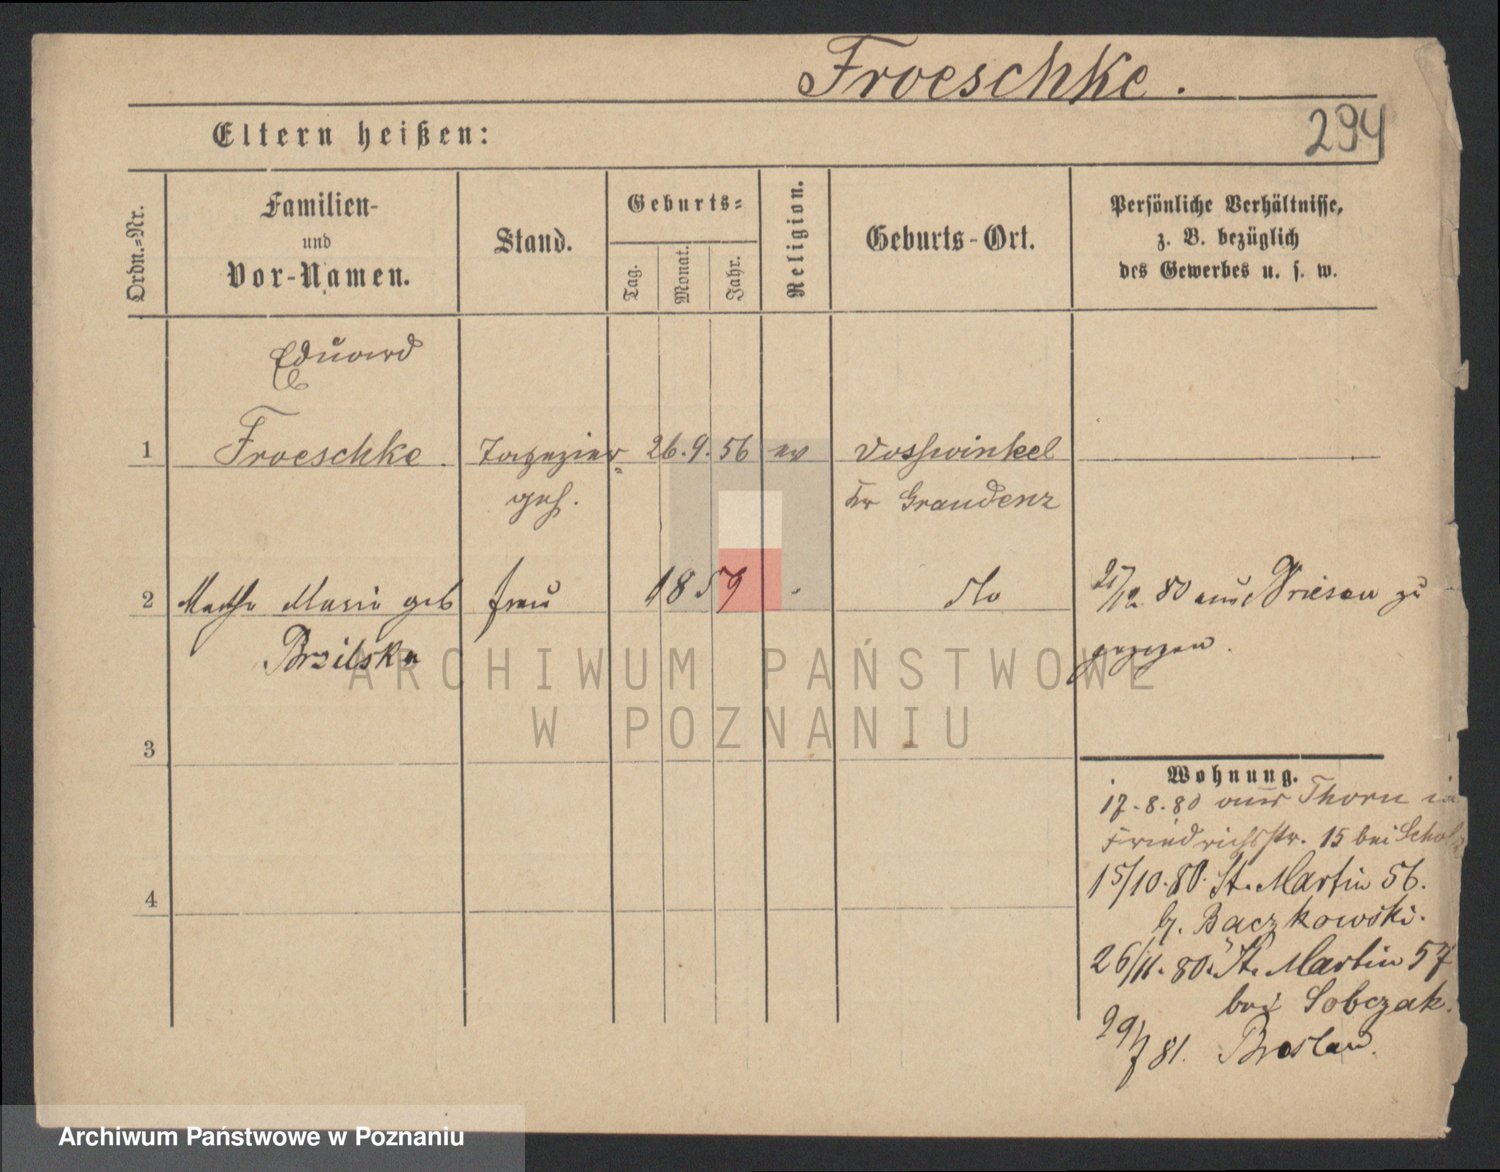 Froeschke.
294
Eltern heißen:
Ordn.-Nr.
Familien-
und
Vor-Namen.
Stand.
Geburts-
Tag.
Monat.
Jahr.
Religion.
Geburts-Ort.
Persönliche Verhältnisse,
z. B. bezüglich
des Gewerbes u. s. w.
Eduard
1 Froeschke. Tapezier 26. 9. 56 ev Vosswinkel
geh. Kr Graudenz
2 Marie geb frau 1859 dto 80 aus Wriesen zu
Brzilska gezogen.
3
Wohnung.
17.8.80 aus Thorn in
Friedrichsstr. 15 bei
4 15/10.80. St. Martin 56.
b. Baczkowski.
26/11.80. St. Martin 57
bei Sobczak.
29/7 81. Breslau.
ARCHIWUM PAŃSTWOWE
W POZNANIU
Archiwum Państwowe w Poznaniu